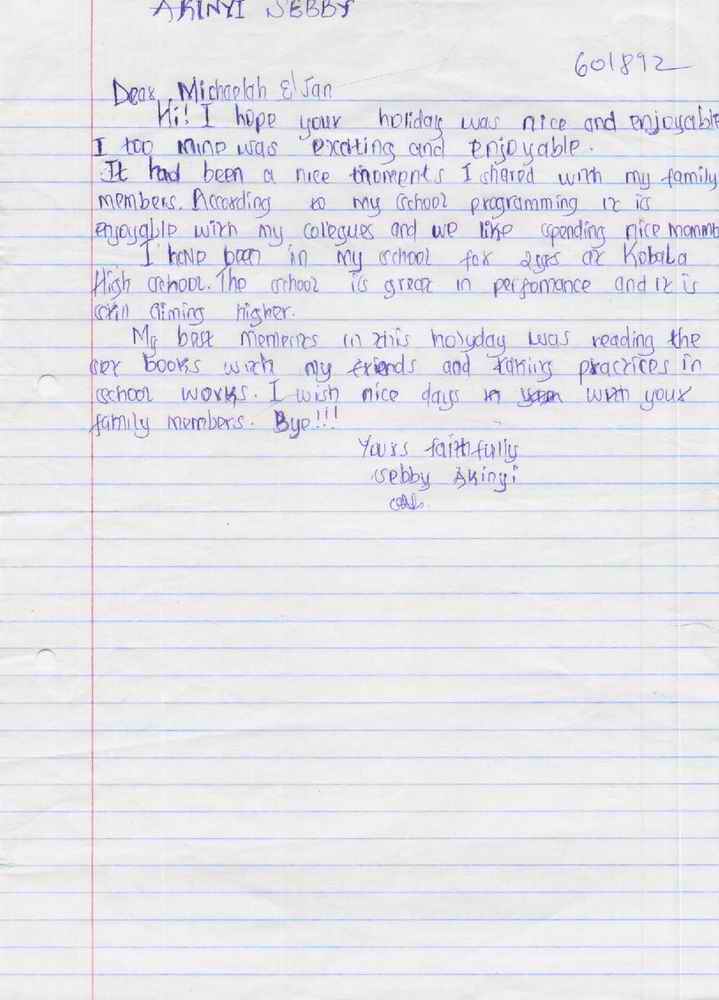 AKINYI SEBBY
601892
Dear Michaelah & Jan
Hi! I hope your holiday was nice and enjoyable
I too mine was exciting and enjoyable.
It had been a nice moments I shared with my family
members. According to my school programming it is
enjoyable with my collegues and we like spending nice momm
I have been in my school for 2yrs at Kobala
High school. The school is great in perfomance and it is
still aiming higher.
My best memeries in this holyday was reading the
set books with my friends and taking practices in
school works. I wish nice days with your
family members. Bye!!!
Yours faithfully
Sebby Akinyi